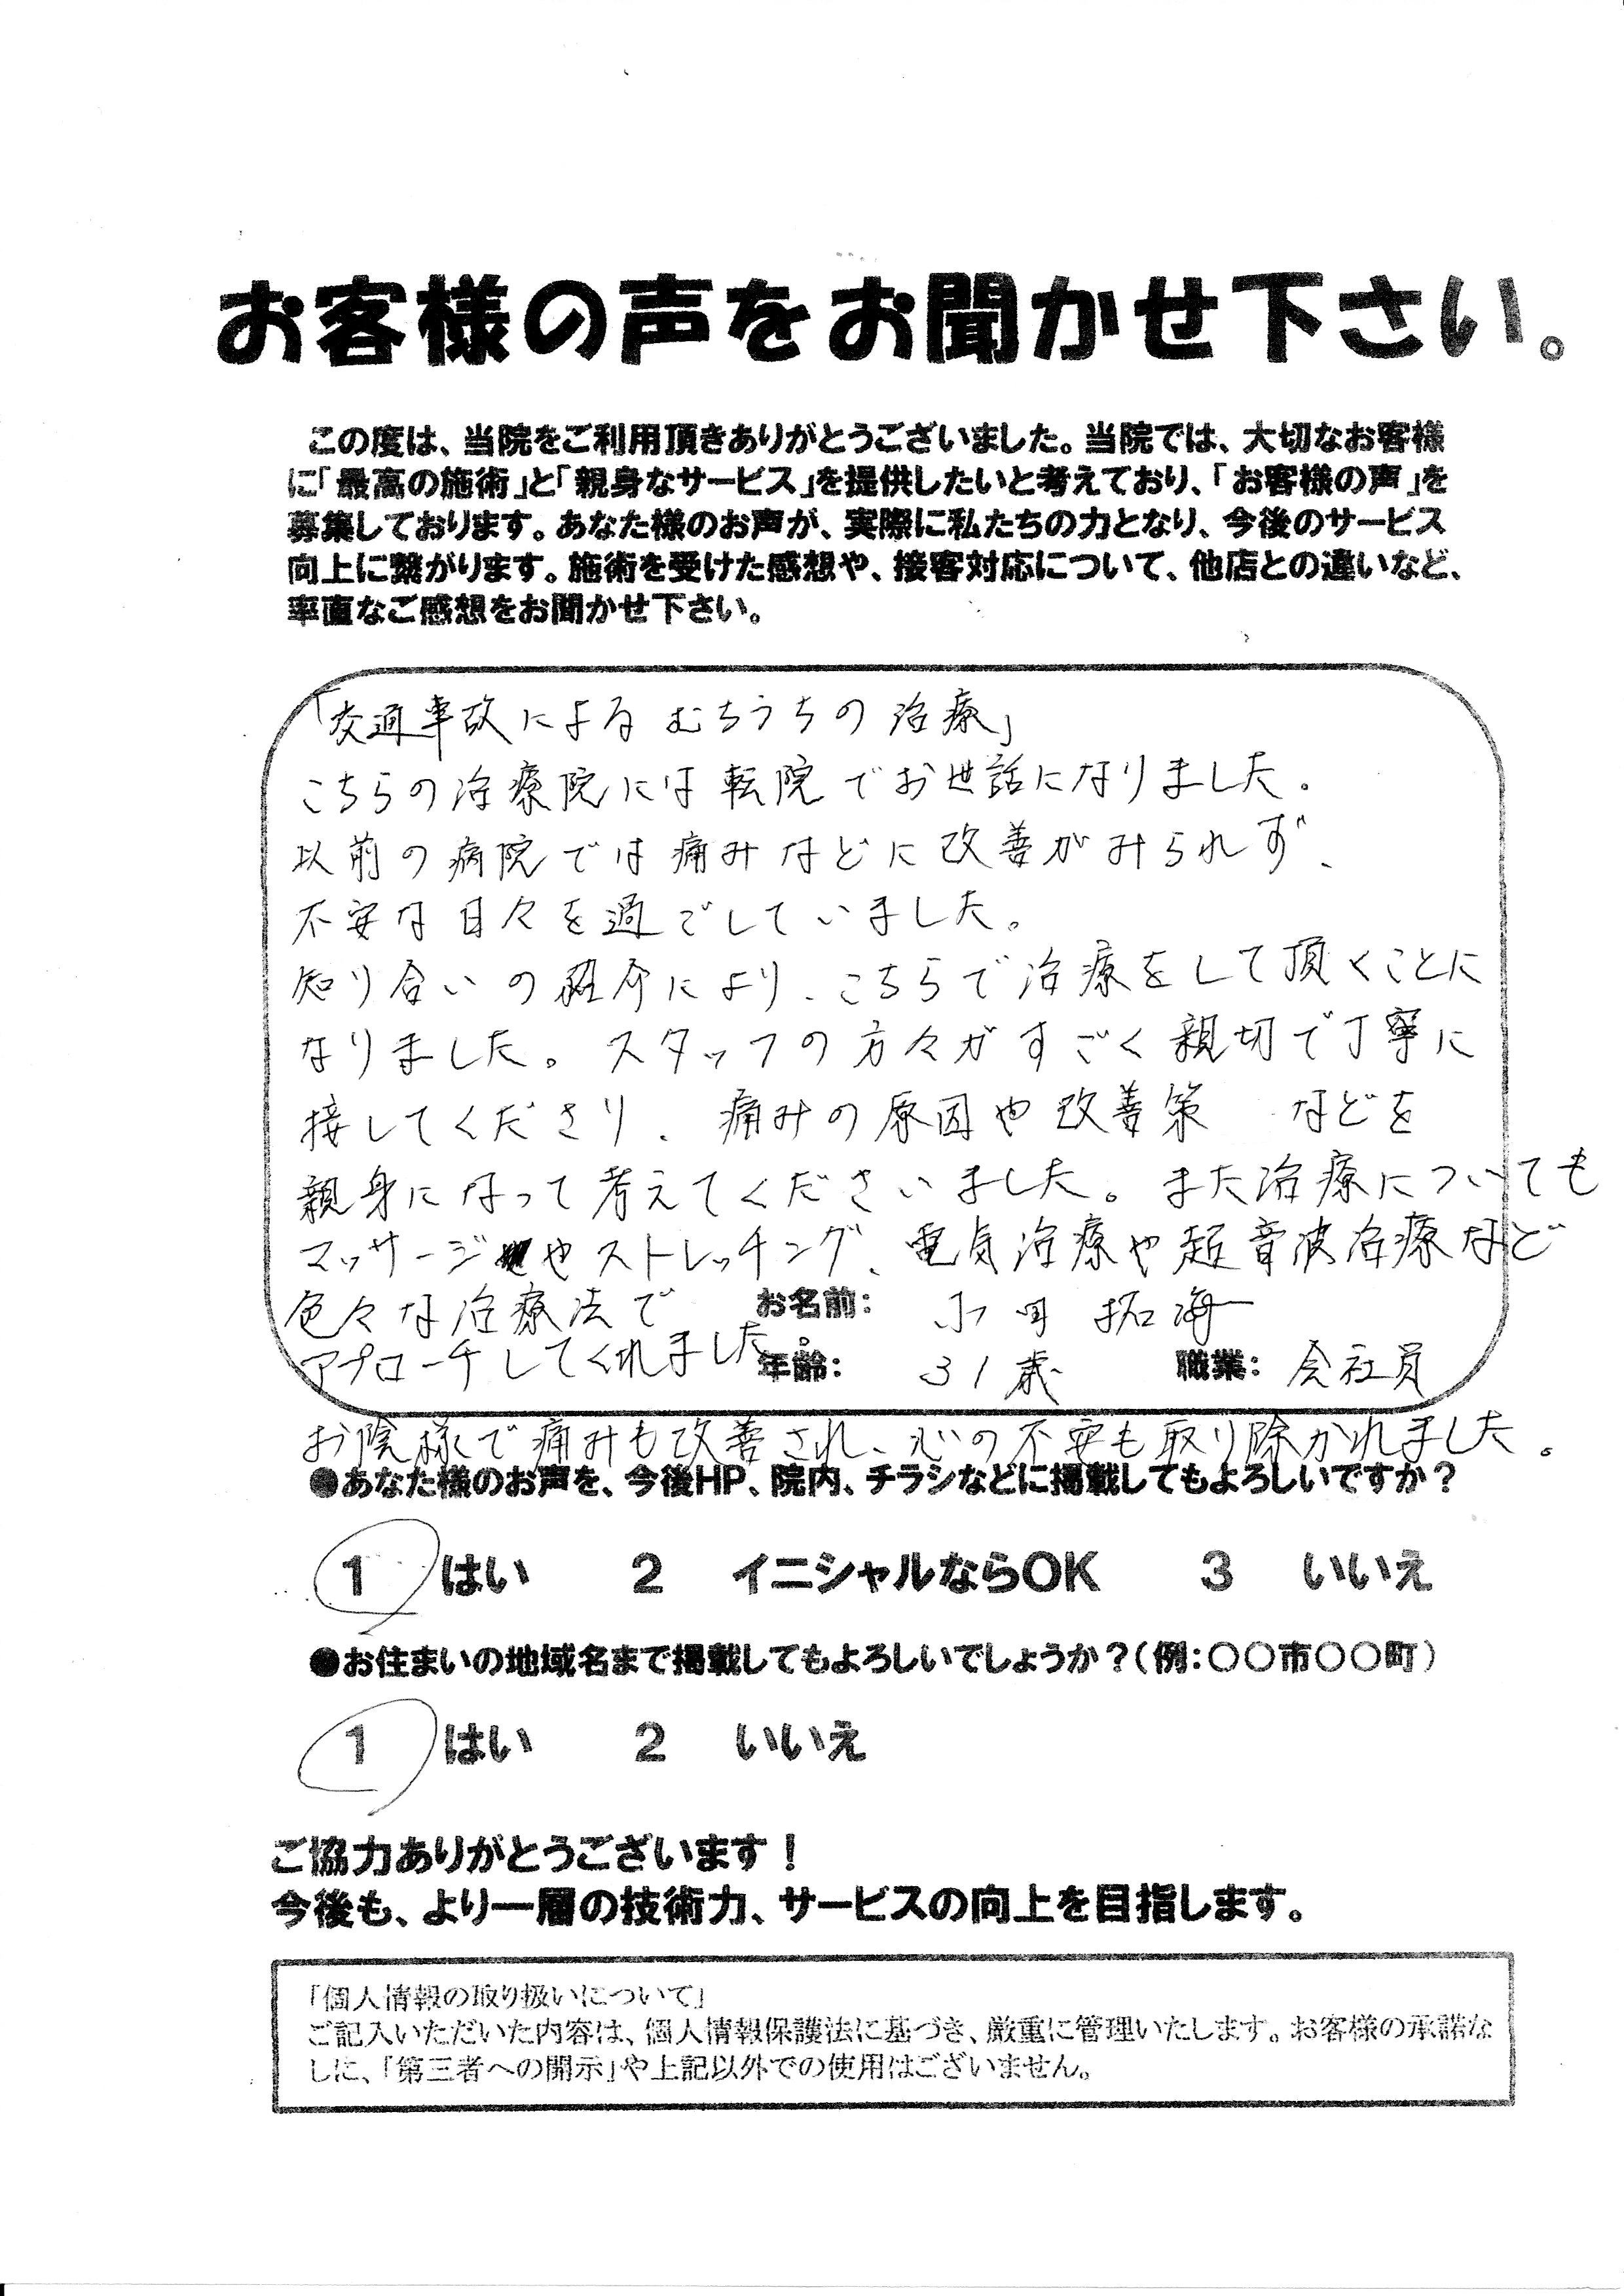 お客様の声をお聞かせ下さい。
この度は、当院をご利用頂きありがとうございました。当院では、大切なお客様
に「最高の施術」と「親身なサービス」を提供したいと考えており、「お客様の声」を
募集しております。あなた様のお声が、実際に私たちの力となり、今後のサービス
向上に繋がります。施術を受けた感想や、接客対応について、他店との違いなど、
率直なご感想をお聞かせ下さい。
「交通事故によるむちうちの治療」
こちらの治療院には転院でお世話になりました。
以前の病院では痛みなどに改善がみられず、
不安な日々を過ごしていました。
知り合いの紹介により、こちらで治療をして頂くことに
なりました。スタッフの方々がすごく親切で丁寧に
接してくださり、痛みの原因や改善策 などを
親身になって考えてくださいました。また治療についても
マッサージやストレッチング、電気治療や超音波治療など
色々な治療法で
お名前: 拓海
アプローチしてくれました。
年齢: 31歳 職業: 会社員
お陰様で痛みも改善され、心の不安も取り除かれました。
●あなた様のお声を、今後HP、院内、チラシなどに掲載してもよろしいですか?
1 はい 2 イニシャルならOK 3 いいえ
●お住まいの地域名まで掲載してもよろしいでしょうか?(例:〇〇市〇〇町)
1 はい 2 いいえ
ご協力ありがとうございます!
今後も、より一層の技術力、サービスの向上を目指します。
「個人情報の取り扱いについて」
ご記入いただいた内容は、個人情報保護法に基づき、厳重に管理いたします。お客様の承諾な
しに、「第三者への開示」や上記以外での使用はございません。